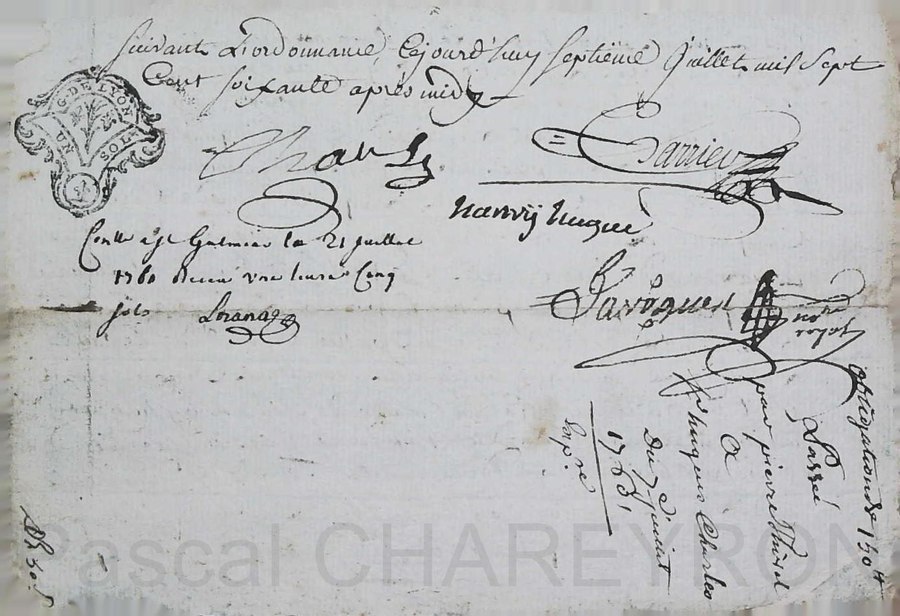 Suivant L'ordonnance, Cejourd'huy septieme Juillet mil Sept
Cent soixante apres midy
G. DE LYON
UN SOL
Charles
Barrieu
hanrij hugue
Conlle a st Galmier le 21 Juillet
1760 Receu une livre Cinq
sols
Javogues
notre
royal
obligation de 150 tt
Passée
par pierre Thivel
A
hugues Charles
Du 7 Juillet
1760
Pascal CHAREYRON